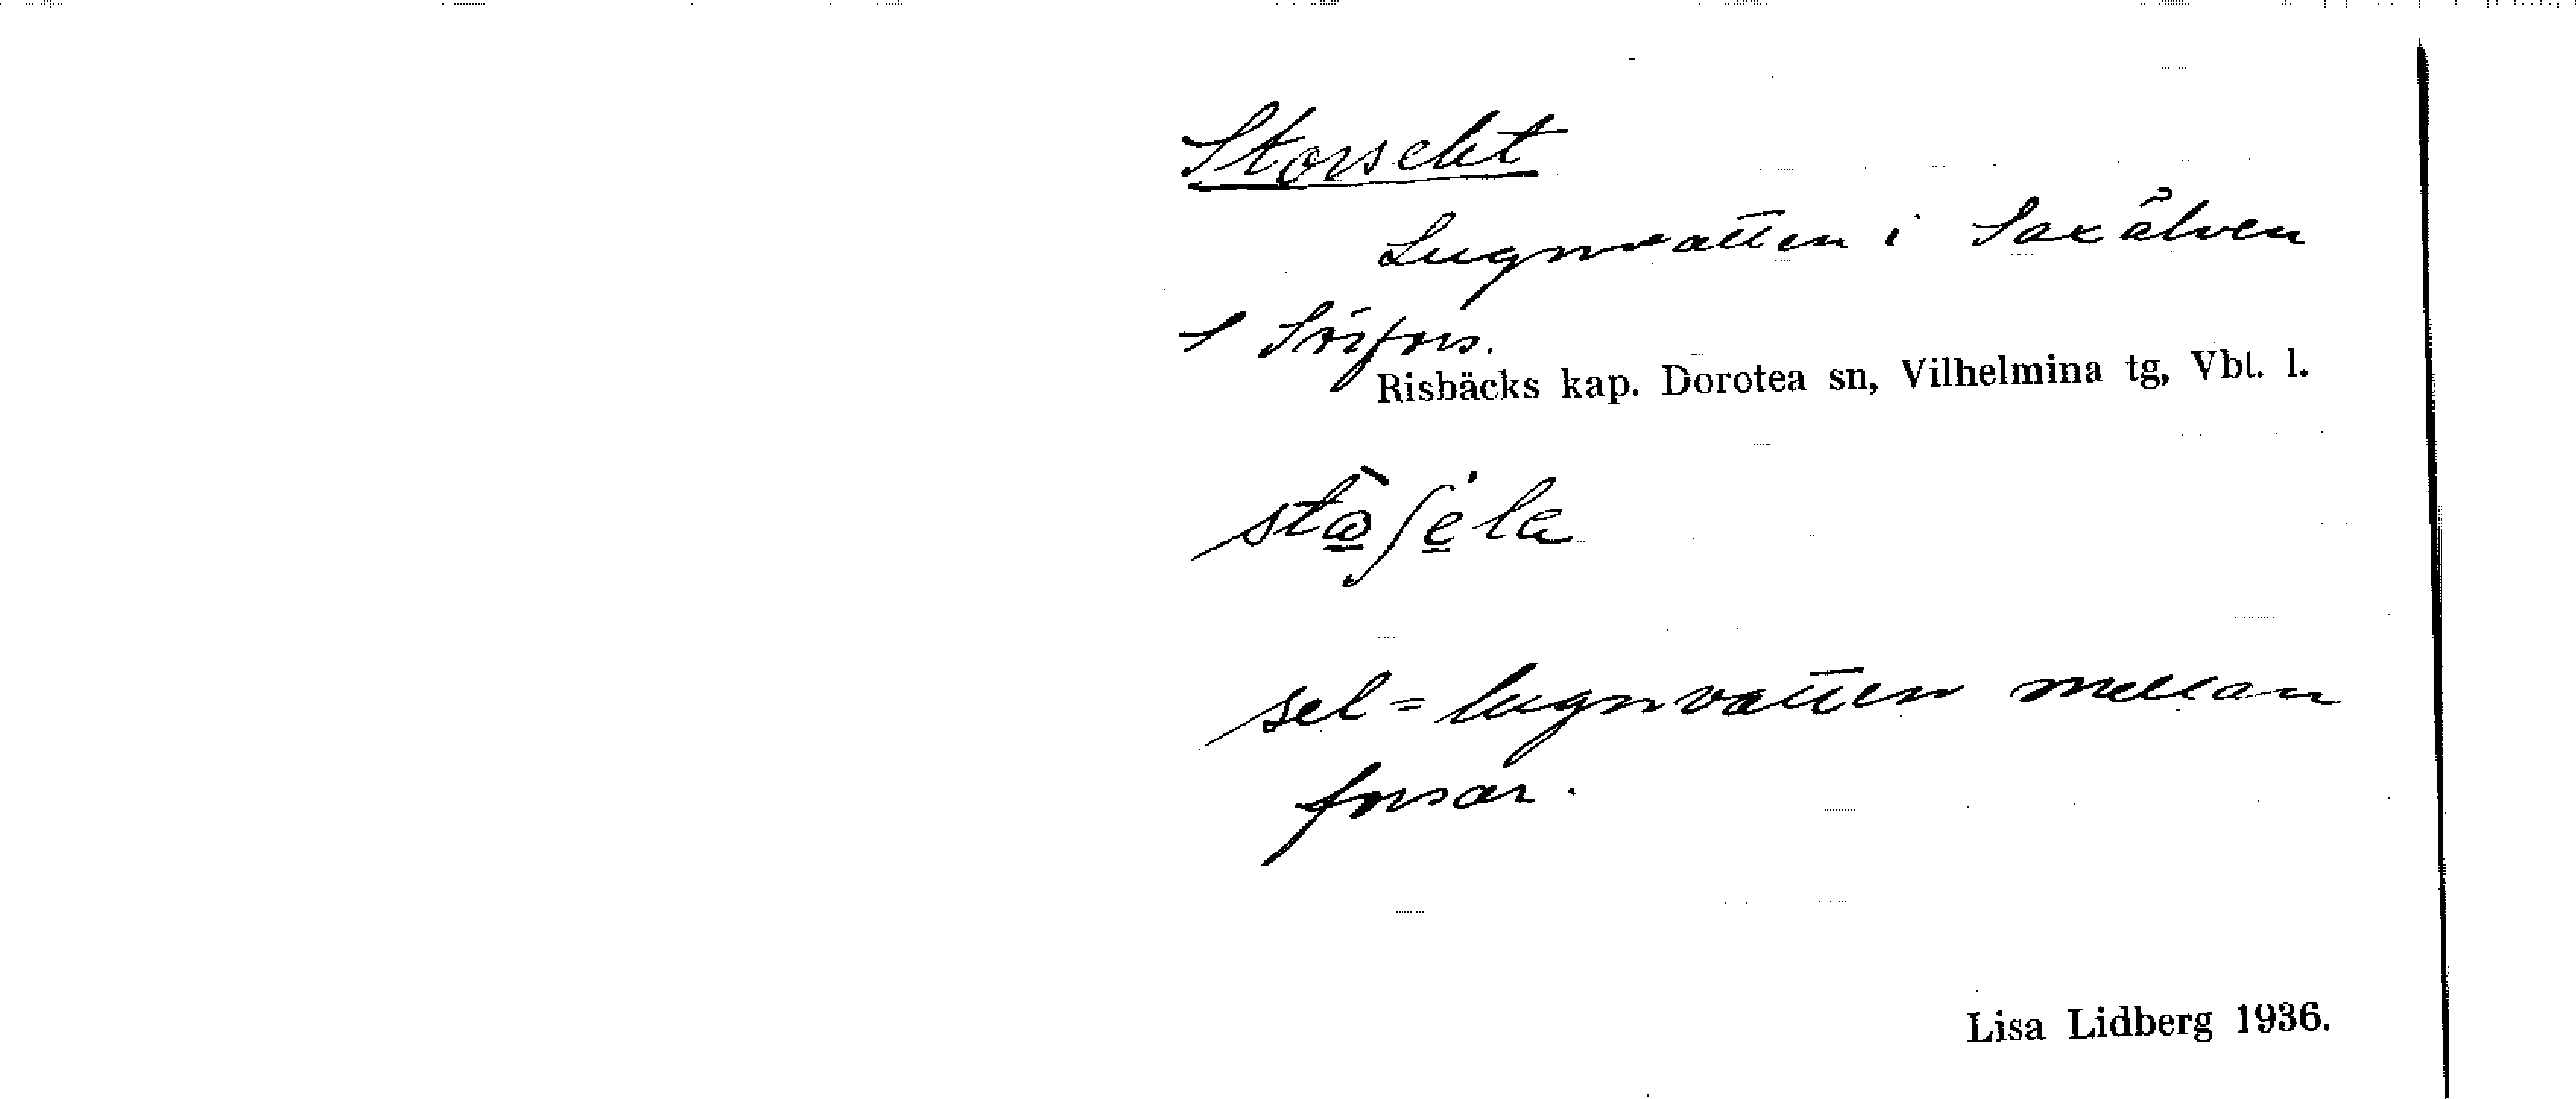 Storselet
Lugnvatten i Saxälven
S Sörfors.
Risbäcks kap. Dorotea sn, Vilhelmina tg, Vbt. l.
sel = lugnvatten mellan
forsar.
Lisa Lidberg 1936.